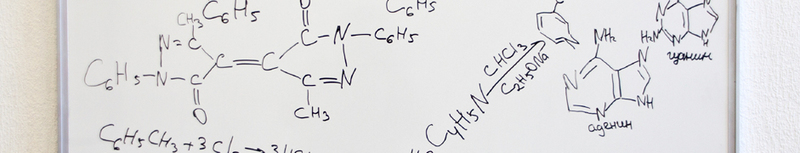 CH₃ C₆H₅
C₆H₅
N=C
C–N–C₆H₅
C=C
C₆H₅–N–C
C=N
O
CH₃
C₆H₅CH₃+3Cl₂→
C₄H₅N
CHCl₃
C₂H₅ONa
N
NH₂
N
N
N
NH
аденин
H₂N
N
гуанин